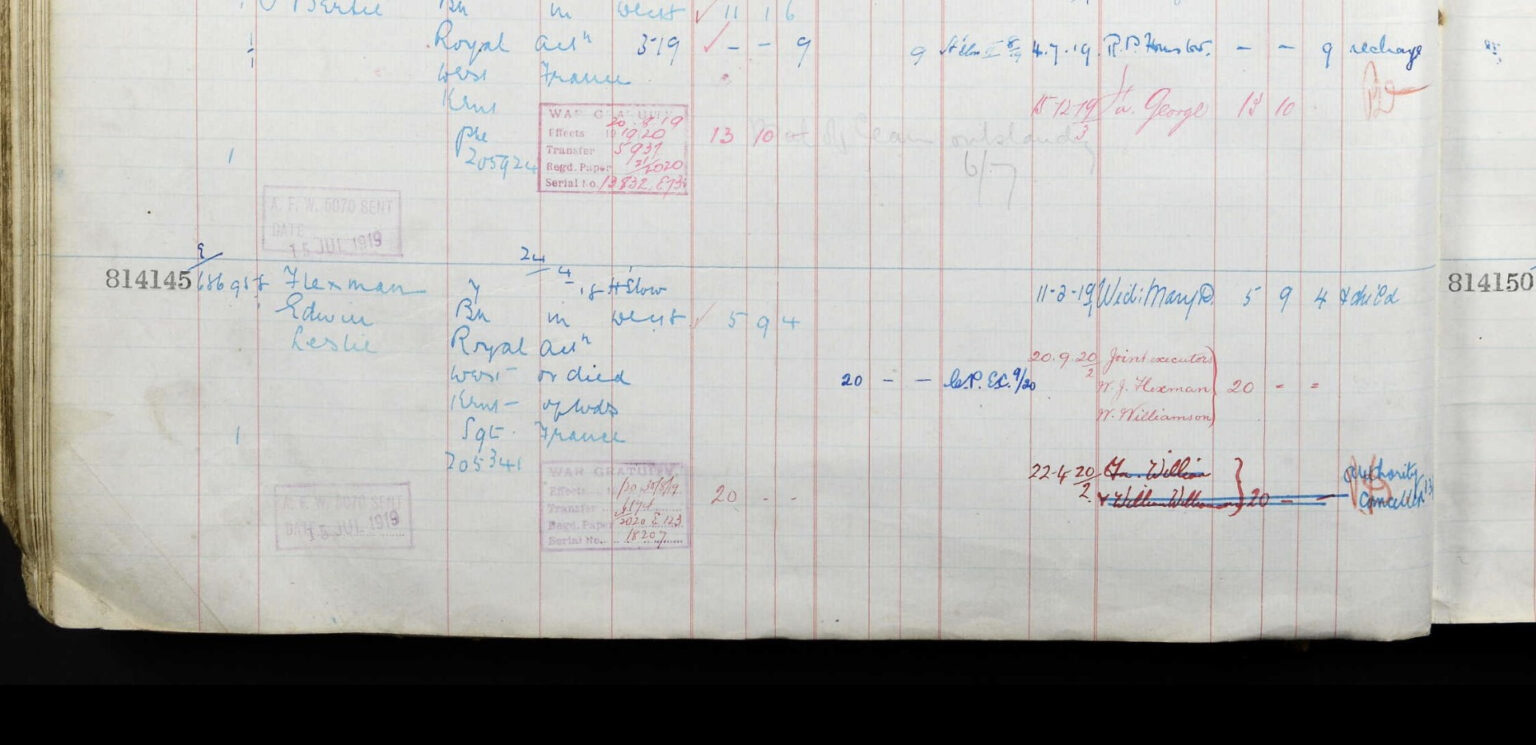 Bertie Bn in West 11 1 6
Royal Act 3-19 - - 9 9 4.7.19. - - 9 recharge
West France
Kent 15-12-19 Fa. George 13 10
3
WAR GRATUITY
Effects 1920
Transfer 5937
Regd. Paper 2020
Serial No. 13832
13 10
outstanding
6/7
Pte
205924
1
A. F. W. 5070 SENT
DATE 15 JUL 1919
24
4
814145 Flexman 7 18 11-2-19 Wid: Mary 5 9 4 & child 814150
Edwin Bn in West 5 9 4
Leslie Royal Act
West or died
Kent of wds
Sgt. France
205341
1
20 - - 9/20
20.9.20 Joint executors
2
W. J. Flexman 20 - -
W. Williamson
WAR GRATUITY
Effects
Transfer
Regd. Paper 2020 E 123
Serial No. 18207
20 - -
22-4-20 Fa. William
2
& William Williamson 20 - -
Authority
Cancelled
A. F. W. 5070 SENT
DATE 15 JUL 1919